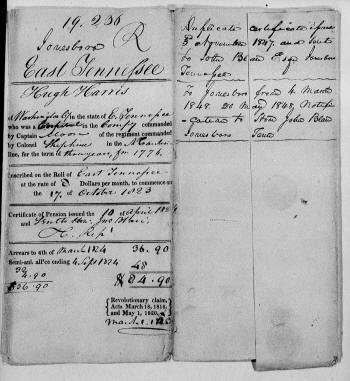 19.256
Jonesboro R
East Tennessee
Hugh Harris
of Washington Co in the state of E. Tennessee
who was a in the Compy commanded
by Captain of the regiment commanded
by Colonel Stephens in the N. Carolina
line, for the term of three years, for 1776.
Inscribed on the Roll of East Tennessee
at the rate of 8 Dollars per month, to commence on
the 17. of October 1823
Certificate of Pension issued the 10 of April 1824
and Sent to Hon. Jno Blair
H. Rep.
Arrears to 4th of March 1824 36.90
Semi-anl. all'ce ending 4 Sept 1824 48
$84.90
$36.90
Revolutionary claim,
Acts March 18, 1818,
and May 1, 1820.
Duplicate certificate issued
8 November 1847. and Sent
to John Blair Esq Jonesboro
Tennessee
To Jonesboro from 4 March
1848. 20 May 1848, Notifi-
cation to Hon John Blair
Jonesboro Tenn